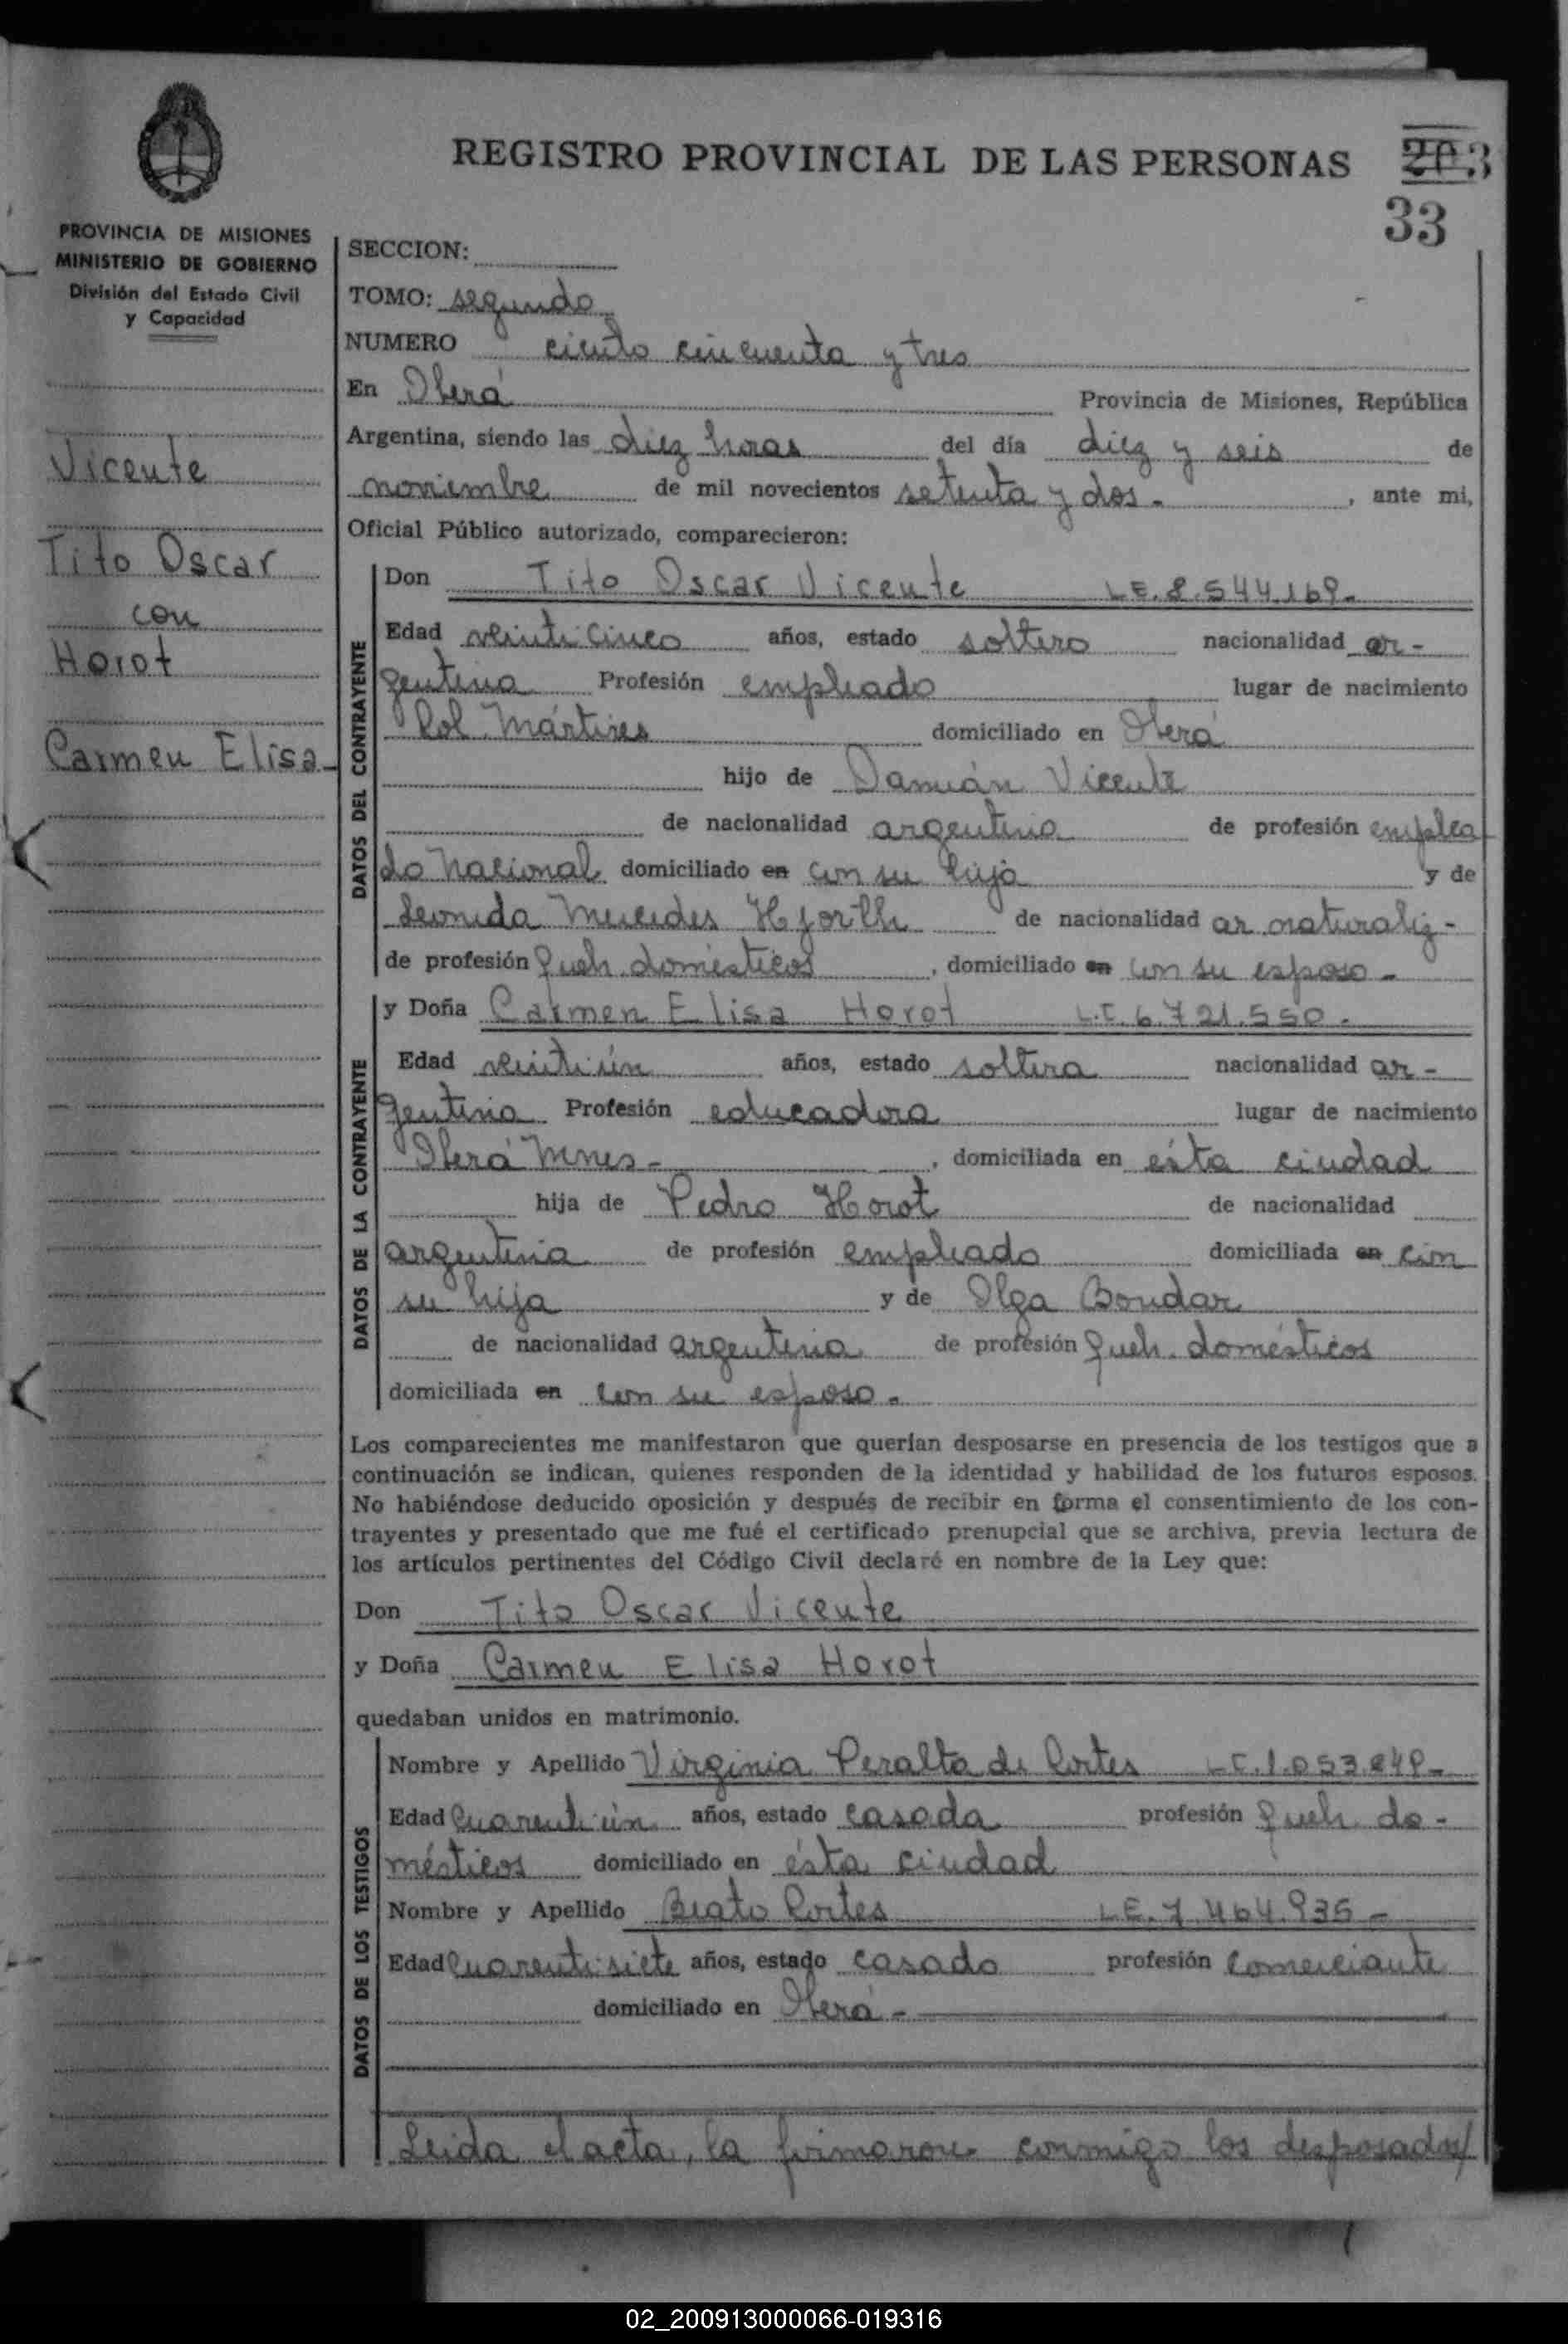 REGISTRO PROVINCIAL DE LAS PERSONAS 203
33
PROVINCIA DE MISIONES
MINISTERIO DE GOBIERNO
División del Estado Civil
y Capacidad
Vicente
Tito Oscar
con
Horot
Carmen Elisa
SECCION:
TOMO: segundo
NUMERO ciento cincuenta y tres
En Oberá Provincia de Misiones, República
Argentina, siendo las diez horas del día diez y seis de
noviembre de mil novecientos setenta y dos.- , ante mi,
Oficial Público autorizado, comparecieron:
DATOS DEL CONTRAYENTE
Don Tito Oscar Vicente L.E. 8.544.169.-
Edad veinticinco años, estado soltero nacionalidad ar-
gentina Profesión empleado lugar de nacimiento
Col. Mártires domiciliado en Oberá
hijo de Damián Vicente
de nacionalidad argentina de profesión emplea
do Nacional domiciliado en con su hijo y de
Leonida Mercedes Hjorth de nacionalidad ar naturaliz-
de profesión queh. domésticos , domiciliado en con su esposo.-
DATOS DE LA CONTRAYENTE
y Doña Carmen Elisa Horot L.C. 6.721.550.-
Edad veintiún años, estado soltera nacionalidad ar-
gentina Profesión educadora lugar de nacimiento
Oberá Mnes- , domiciliada en ésta ciudad
hija de Pedro Horot de nacionalidad
argentina de profesión empleado domiciliada en con
su hija y de Olga Bondar
de nacionalidad argentina de profesión queh. domésticos
domiciliada en con su esposo.-
Los comparecientes me manifestaron que querían desposarse en presencia de los testigos que a
continuación se indican, quienes responden de la identidad y habilidad de los futuros esposos.
No habiéndose deducido oposición y después de recibir en forma el consentimiento de los con-
trayentes y presentado que me fué el certificado prenupcial que se archiva, previa lectura de
los artículos pertinentes del Código Civil declaré en nombre de la Ley que:
Don Tito Oscar Vicente
y Doña Carmen Elisa Horot
quedaban unidos en matrimonio.
DATOS DE LOS TESTIGOS
Nombre y Apellido Virginia Peralta de Cortes L.C.
Edad Cuarentiún años, estado casada profesión queh. do-
mésticos domiciliado en ésta ciudad
Nombre y Apellido Beato Cortes L.E. 7.464.935-
Edad Cuarentisiete años, estado casado profesión comerciante
domiciliado en Oberá-
Leída el acta, la firmaron conmigo los desposados/
02_200913000066-019316